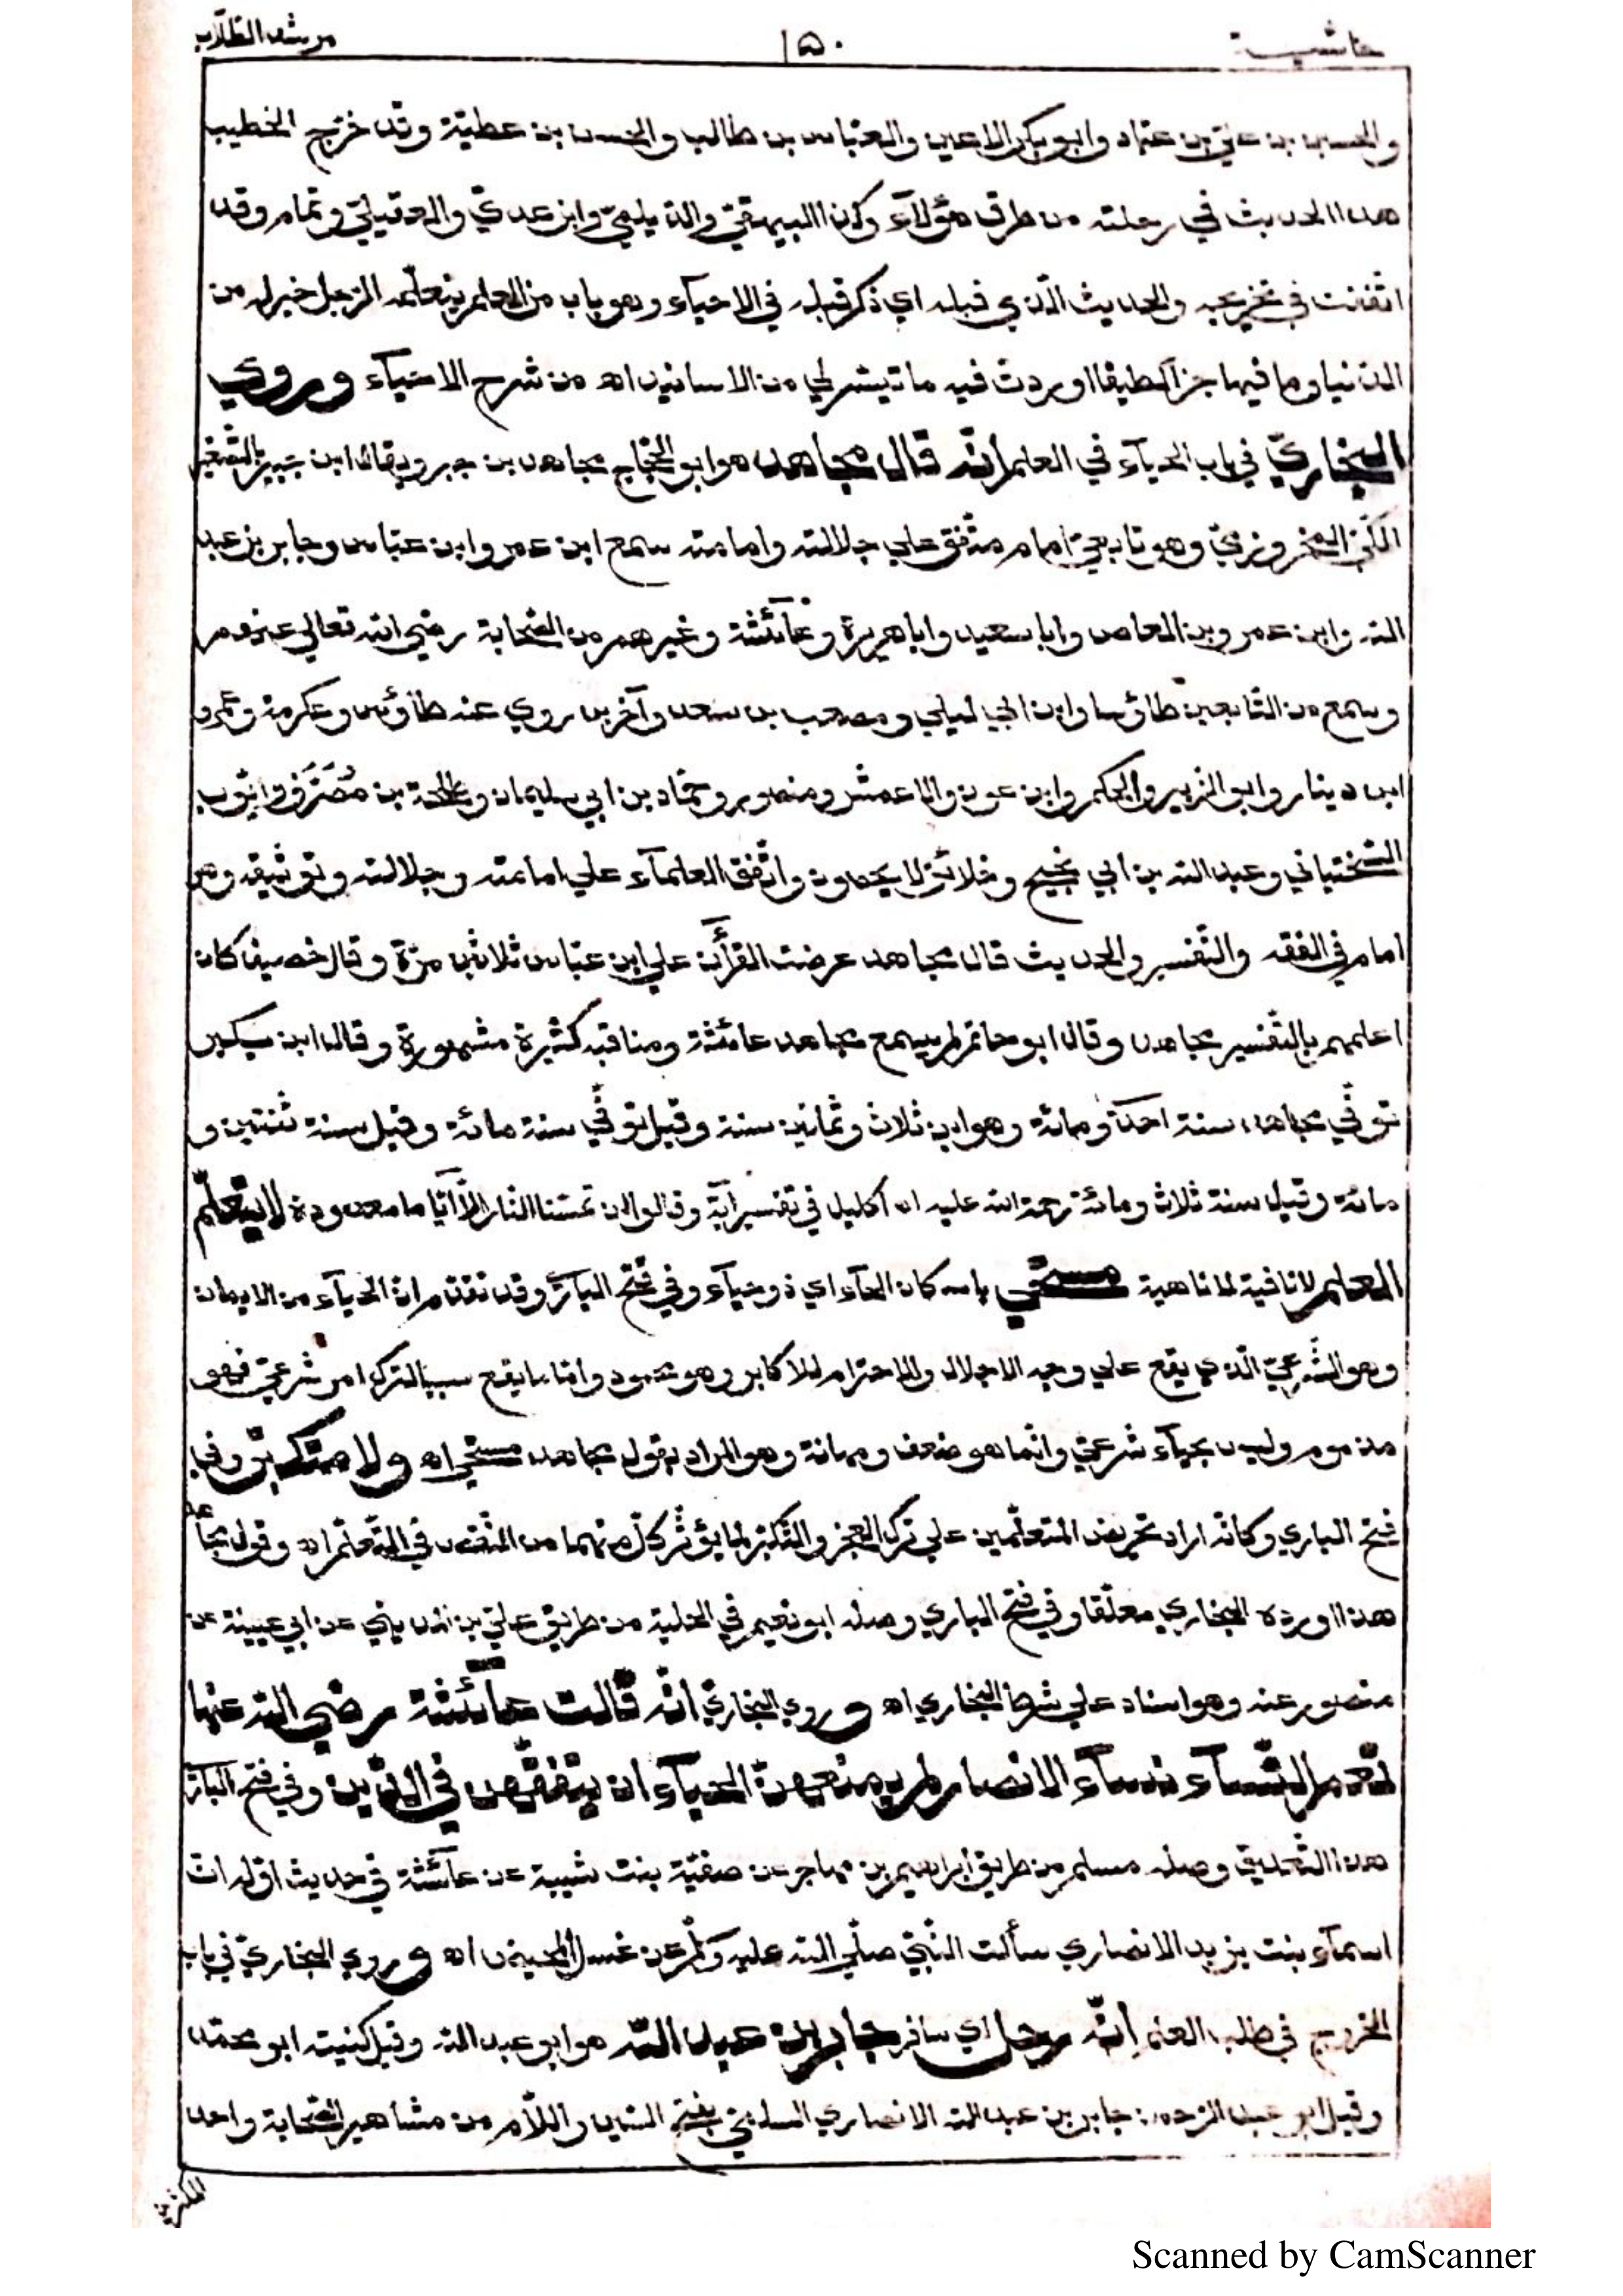 حاشية ١٥٠ مرشد الطلّاب
والحسين بن عليّ بن عتماد وابو بكر الاعين والعبّاس بن طالب والحسن بن عطيّة وقد خرّج الخطيب
هذا الحديث في رحلته من طرق هؤلآء وكذا البيهقيّ والديلميّ وابن عديّ والعقيليّ وتمام وقد
اتقنت في تخريجه والحديث الّذي قبله اي ذكر قبله في الاحيآء وهو باب من العلم يتعلّمه الرّجل خير له من
الدّنيا وما فيها جزأ لطيفا اوردت فيه ما تيسّر لي من الاسانيد اه من شرح الاحيآء وروي
البخاريّ في باب الحيآء في العلم انّه قال مجاهد هو ابو الحجّاج مجاهد بن جبر ويقال ابن جبير بالتّصغير
المكّيّ المخزوميّ وهو تابعيّ امام متّفق علي جلالته وامامته سمع ابن عمر وابن عبّاس وجابر بن عبد
الله وابن عمرو بن العاص وابا سعيد وابا هريرة وعآئشة وغيرهم من الصّحابة رضي الله تعالي عنهم
وسمع من التّابعين طاؤسا وابن ابي ليلي ومصعب بن سعد وآخرين روي عنه طاؤس وعكرمة وعمرو
ابن دينار وابو الزبير والحكم وابن عون والاعمش ومنصور وحمّاد بن ابي سليمان وطلحة بن مُصَرِّف وايّوب
السّختياني وعبد الله بن ابي نجيح وخلائق لا يحصون واتّفق العلمآء علي امامته وجلالته وتوثيقه وهو
امام في الفقه والتّفسير والحديث قال مجاهد عرضت القرآن علي ابن عبّاس ثلاثين مرّة وقال خصيف كان
اعلمهم بالتّفسير مجاهد وقال ابو حاتم لم يسمع مجاهد عائشة ومناقبه كثيرة مشهورة وقال ابن بكير
توفّي مجاهد سنة احدي ومائة وهو ابن ثلاث وثمانين سنة وقيل توفّي سنة مائة وقيل سنة ثنتين و
مائة وقيل سنة ثلاث ومائة رحمة الله عليه اه اكليل في تفسير آية وقالوا لن تمسّنا النّار الّا ايّاما معدودة لا يتعلّم
العلم لا نافية لا ناهية مستحي باسكان الحآء اي ذو حيآء وفي فتح الباريّ وقد تقدّم انّ الحيآء من الايمان
وهو الشّرعيّ الّذي يقع علي وجه الاجلال والاحترام للاكابر وهو محمود وامّا ما يقع سببا لترك امر شرعيّ فهو
مذموم وليس بحيآء شرعيّ وانّما هو ضعف ومهانة وهو المراد بقول مجاهد مستحي اه ولا متكبّر وفي
فتح الباري وكانّه اراد تحريض المتعلّمين علي ترك العجز والتّكبّر لما يؤثّر كلّ منهما من النّقص في التّعلّم اه وقول مجاهد
هذا اورده البخاري معلّقا وفي فتح الباري وصله ابو نعيم في الحلية من طريق عليّ بن المديني عن ابي عيينة عن
منصور عنه وهو اسناد علي شرط البخاري اه وروي البخاريّ انّه قالت عآئشة رضي الله عنها
نعم النّسآء نسآء الانصار لم يمنعهنّ الحيآء ان يتفقّهن في الدّين وفي فتح الباريّ
هذا التّعليق وصله مسلم من طريق ابراهيم بن مهاجر عن صفيّة بنت شيبة عن عآئشة في حديث اوّله انّ
اسمآء بنت يزيد الانصاري سألت النّبيّ صلّي الله عليه وسلّم عن غسل المحيض اه وروي البخاريّ في باب
الخروج في طلب العلم انّه رحل اي سافر جابر بن عبد الله هو ابو عبد الله وقيل كنيته ابو محمّد
وقيل ابو عبد الرّحمن جابر بن عبد الله الانصاري السلميّ بفتح السّين واللّام من مشاهير الصّحابة واحد
المكثرين
Scanned by CamScanner